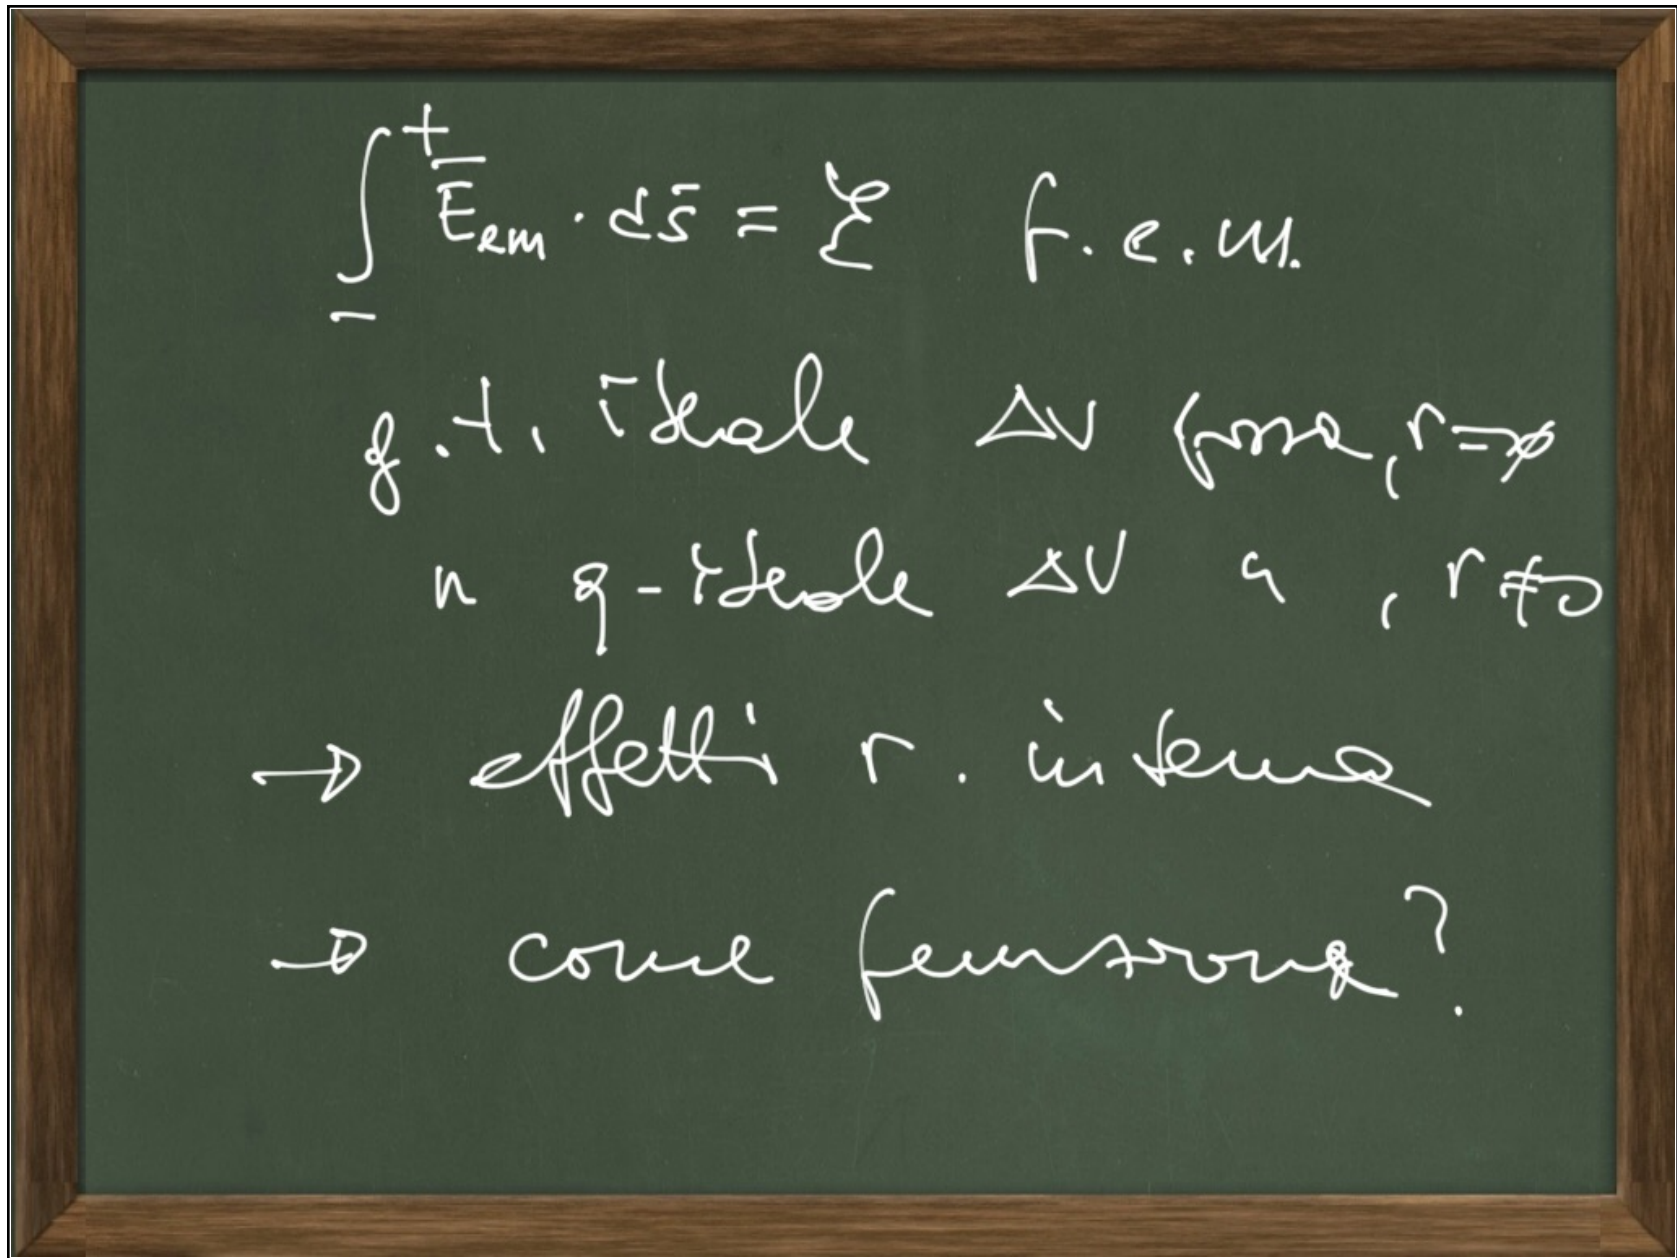 ∫₋⁺ Ēem · ds̄ = ξ f.e.m.
g.t. ideale ΔV fissa, r=0
" q-ideale ΔV " , r≠0
→ effetti r. interna
→ come funziona?